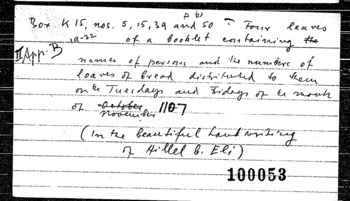 Box K 15, nos. 5, 15, 39 and 50 - Four leaves
of a booklet containing the
II App. B 18-22
names of persons and the numbers of
loaves of bread distributed to them
on the Tuesdays and Fridays of the month
of October 1107
November
(In the beautiful handwriting
of Hillel b. Eli)
100053